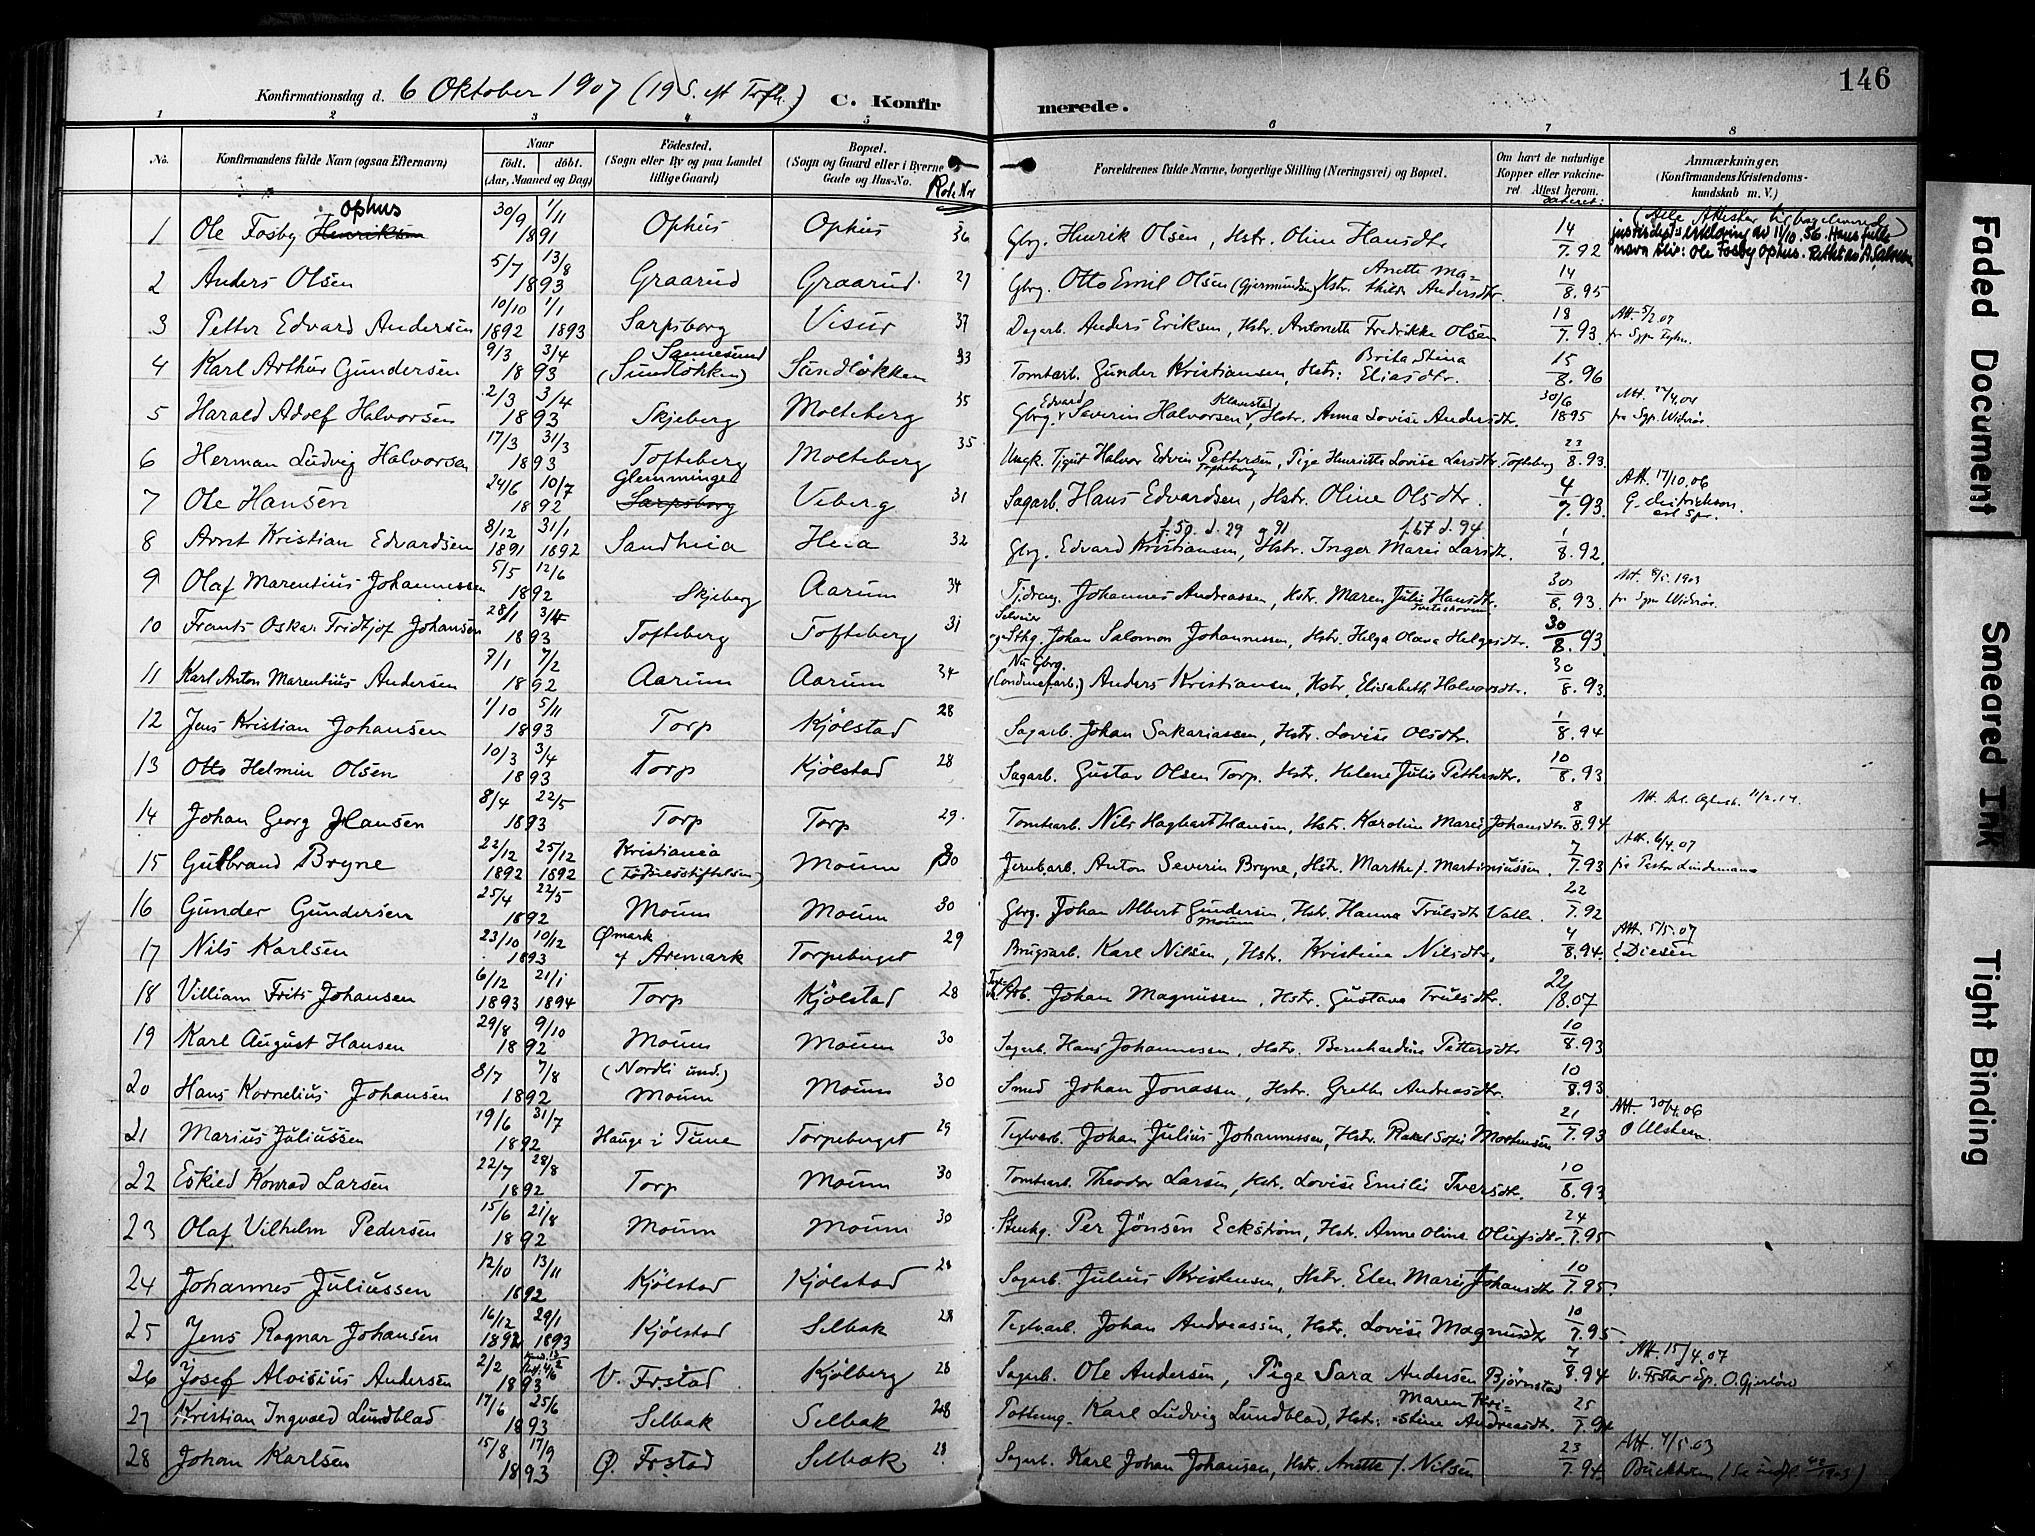 146
Konfirmationsdag d. 6 Oktober 1907 (19 S. eft Trfh.) C. Konfirmerede.
1 2 3 4 5 6 7 8
No. Konfirmandens fulde Navn (ogsaa Efternavn) Naar födt. döbt. (Aar, Maaned og Dag) Födested. (Sogn eller By og paa Landet tillige Gaard) Bopæl. (Sogn og Gaard eller i Byerne Gade og Hus-No. Rode Nr Forældrenes fulde Navne, borgerlige Stilling (Næringsvei) og Bopæl. Om havt de naturlige Kopper eller vaccineret. Attest herom. dateret: Anmærkninger. (Konfirmandens Kristendomskundskab m. V.)
1 Ole Fosby Henriksen Ophus 30/9 1/11 1891 Ophus Ophus 36 Gbrg. Henrik Olsen, Hstr. Oline Hansdtr. 14/7.92
2 Anders Olsen 5/7 13/8 1893 Graarud Graarud 27 Gbrg. Otto Emil Olsen (Gjermundsen) Hstr. Anette Mathilde Andersdtr. 14/8.95
3 Petter Edvard Andersen 10/10 1892 1/1 1893 Sarpsborg Visur 37 Dagarb. Anders Eriksen, Hstr. Antonette Fredrikke Olsen 18/7.93 Att. 5/2 07
4 Karl Arthur Gundersen 9/3 3/4 1893 Sannesund (Sundløkken) Sundløkken 33 Tomtarb. Gunder Kristiansen, Hstr: Brita Stina Eliasdtr. 15/8.96
5 Harald Adolf Halvorsen 2/3 3/4 1893 Skjeberg Molteberg 35 Gbrg. Edvard Severin Halvorsen Klavestad, Hstr. Anna Lovise Andersdtr. 30/6 1895
6 Herman Ludvig Halvorsen 17/3 31/3 1893 Tofteberg Molteberg 35 Ungk. Tjgut Halvor Edvin Pettersen Tofteberg, Pige Henriette Lovise Larsdtr. Tofteberg 23/8.93
7 Ole Hansen 24/6 10/7 1892 Glemminge Sarpsborg Viberg 31 Sagarb. Hans Edvardsen, Hstr. Oline Olsdtr. 4/7.93. Att. 17/10.06
8 Arnt Kristian Edvardsen 8/12 1891 31/1 1892 Sandheia Heia 32 Gbrg. Edvard Kristiansen, Hstr. Inger Marie Larsdtr. 1/8.92.
9 Olaf Marentius Johannessen 5/5 12/6 1892 Skjeberg Aarum 34 Tjdreng. Johannes Andreassen, Hstr. Maren Julie Hansdtr. 30/8.93. Att. 8/5.1903
10 Frants Oskar Fridtjof Johansen 28/1 3/4 1893 Tofteberg Tofteberg 31 Johan Salomon Johannessen, Hstr. Helga Olava Helgesdtr. 30/8.93
11 Karl Anton Marentius Andersen 7/1 7/2 1892 Aarum Aarum 34 Nu Gbrg. Anders Kristiansen, Hstr. Elisabeth Halvorsdtr. 30/8.93
12 Jens Kristian Johansen 1/10 5/11 1893 Torp Kjølstad 28 Sagarb. Johan Sakariassen, Hstr. Lovise Olsdtr. 1/8.94
13 Otto Helmin Olsen 10/3 3/4 1893 Torp Kjølstad 28 Sagarb. Gustav Olsen Torp. Hstr. Helene Julie Pettersdtr. 10/8.93
14 Johan Georg Hansen 8/4 22/5 1893 Torp Torp 29. Tomtearb. Nils Hagbart Hansen, Hstr. Karoline Marie Johansdtr. 8/8.94
15 Gulbrand Bryne 22/12 1892 25/12 1892 Kristiania (Fødselsstiftelsen) Moum 30 Jernbarb. Anton Severin Bryne, Hstr. Marthe f. Martiniussen. 7/7.93 Att. 6/4.07
16 Gunder Gundersen 25/4 22/5 1892 Moum Moum 30 Gbrg. Johan Albert Gundersen Moum, Hstr. Hanna Trulsdtr Valle. 22/7.92
17 Nils Karlsen 23/10 10/12 1893 Ømark i Aremark Torpeberget 29 Brugsarb. Karl Nilsen, Hstr. Kristine Nilsdtr. 4/8.94. Att. 1/5.07 E. Diesen
18 Villiam Frits Johansen 6/12 1893 21/1 1894 Torp Kjølstad 28 Johan Magnussen, Hstr. Gustava Trulsdtr. 22/8.07
19 Karl August Hansen 29/8 9/10 1892 Moum Moum 30 Sagarb. Hans Johannessen, Hstr. Bernhardine Pettersdtr 10/8.93
20 Hans Kornelius Johansen 8/7 7/8 1892 (Nordli und.) Moum Moum 30 Smed Johan Jonassen, Hstr. Grethe Andreasdtr. 10/8.93.
21 Marius Juliussen 19/6 31/7 1892 Hauge i Tune Torpeberget 29 Teglvarb. Johan Julius Johannessen, Hstr. Rakel Sofie Mortensen 21/7.93 Att. 30/4.06
22 Eskild Konrad Larsen 22/7 28/8 1892 Torp Moum 30 Tomtearb. Theodor Larsen, Hstr. Lovise Emilie Iversdtr. 10/8.93
23 Olaf Vilhelm Pedersen 15/6 21/8 1892 Moum Moum 30 Stenhg. Per Jönsen Eckström, Hstr. Anne Olina Olufsdtr. 24/7.95
24 Johannes Juliussen 12/10 13/11 1892 Kjølstad Kjølstad 28 Sagarb. Julius Kristensen, Hstr. Elen Marie Johansdtr 10/7.95.
25 Jens Ragnar Johansen 16/12 1892 29/1 1893 Kjølstad Selbak 28 Teglvarb. Johan Andreassen, Hstr. Lovise Magnusdtr 10/7.95.
26 Josef Aloisius Andersen 2/2 1893 V. Frstad Kjølberg 28 Sagarb. Ole Andersen, Pige Sara Andersen Bjørnstad 7/8.94 Att. 15/4.07
27 Kristian Ingvald Lundblad 17/6 25/6 1893 Selbak Selbak 28 Karl Ludvig Lundblad, Hstr: Maren Kristine Andreasdtr. 25/7.94
28 Johan Karlsen 15/8 17/9 1893 Ø. Frstad Selbak 28 Sagarb. Karl Johan Johansen, Hstr. Anette f. Nilsen 23/7.94. Att. 7/5.03
Faded Document
Smeared Ink
Tight Binding